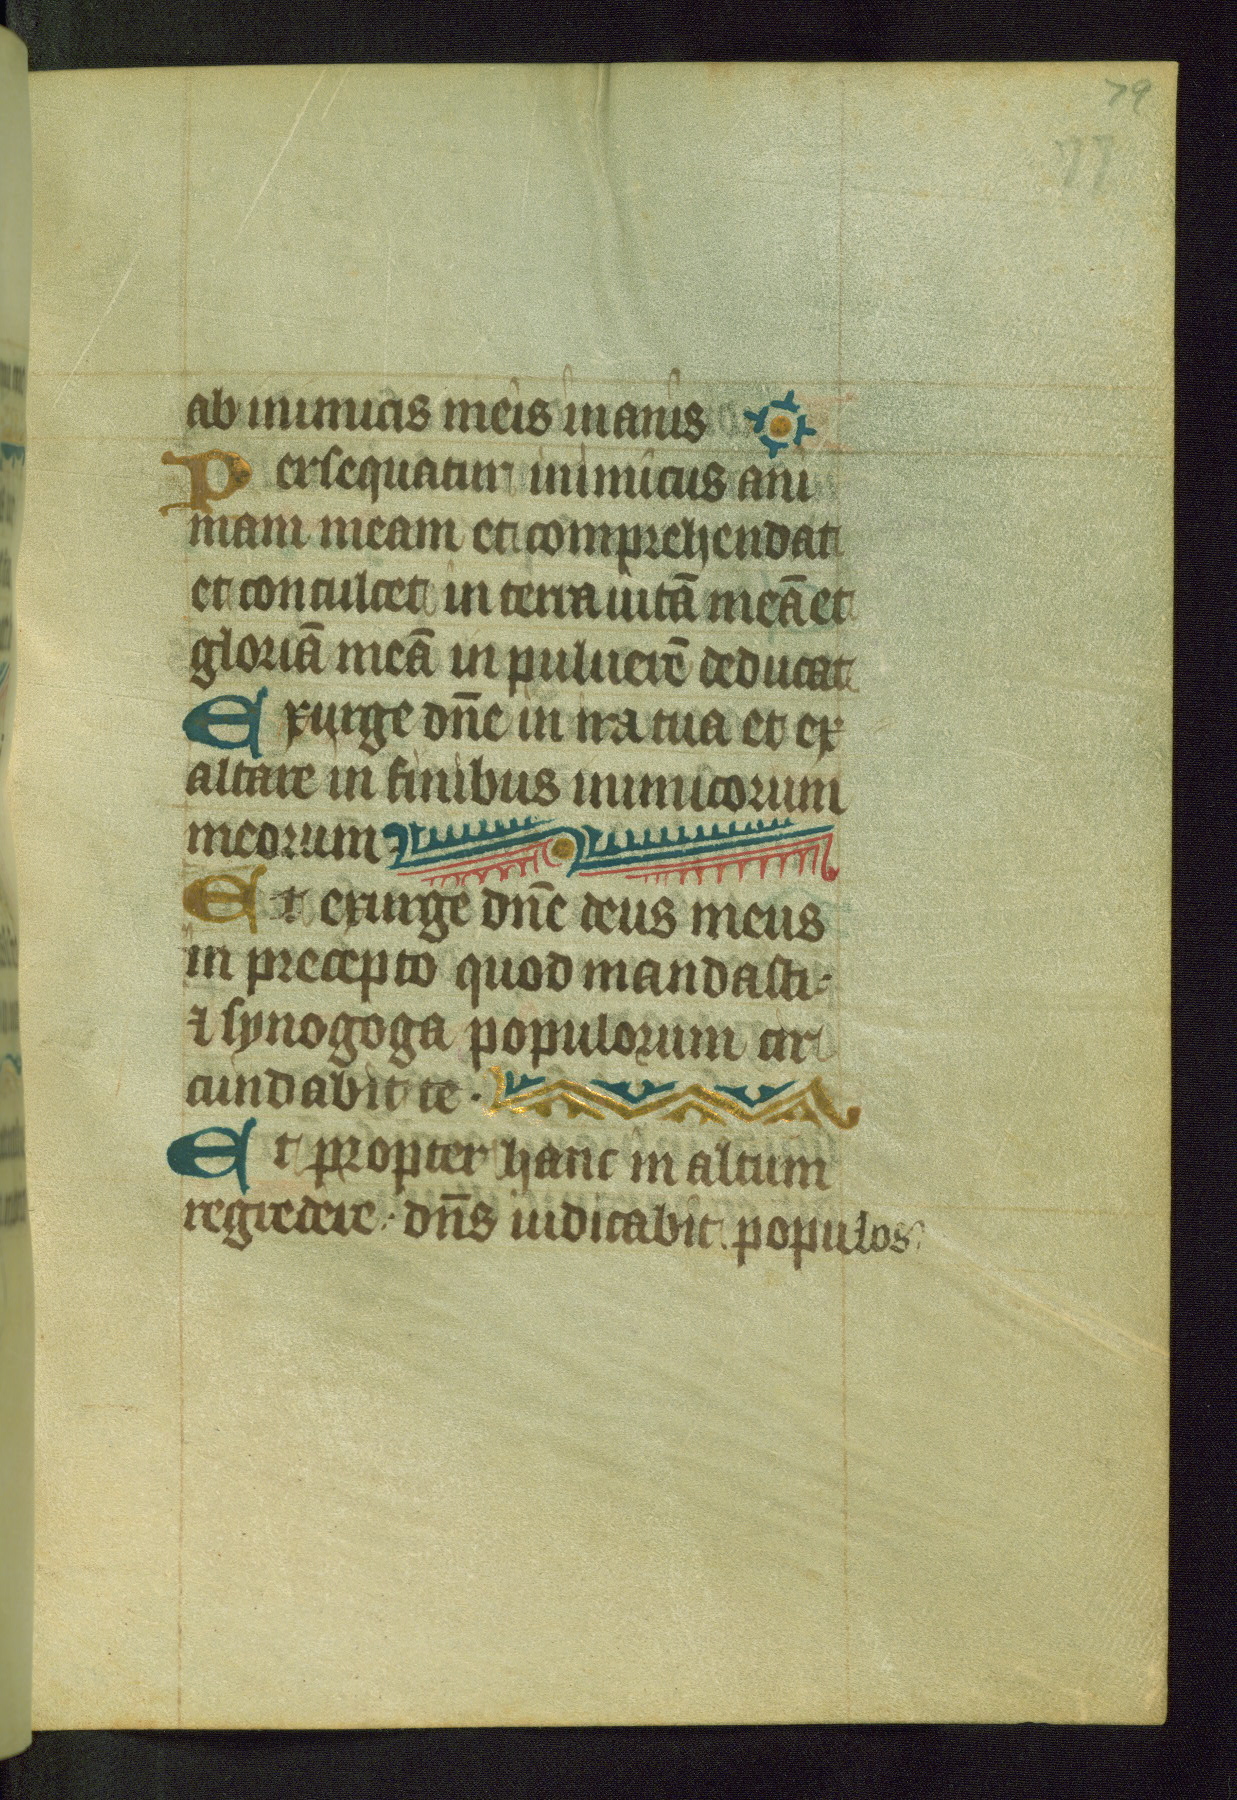 79
77
ab inimicis meis inanis
Persequatur inimicus ani
mam meam et comprehendat
et conculcet in terra uitā meā et
gloriā meā in puluerē deducat
Exurge dn̄e in ira tua et ex
altare in finibus inimicorum
meorum
Et exurge dn̄e deus meus
in precepto quod mandasti·
⁊ synogoga populorum cir
cundabit te ·
Et propter hanc in altum
regredere · dn̄s iudicabit populos